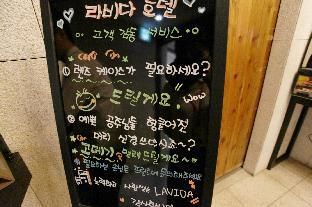 라비다 호텔
고객 감동 서비스
① 렌즈 케이스가 필요하세요?
드릴게요 wow
② 예쁜 공주님들 헝클어진
머리 신경쓰이시죠~?
고데기 빌려 드릴게요~
LAVIDA
감사합니다